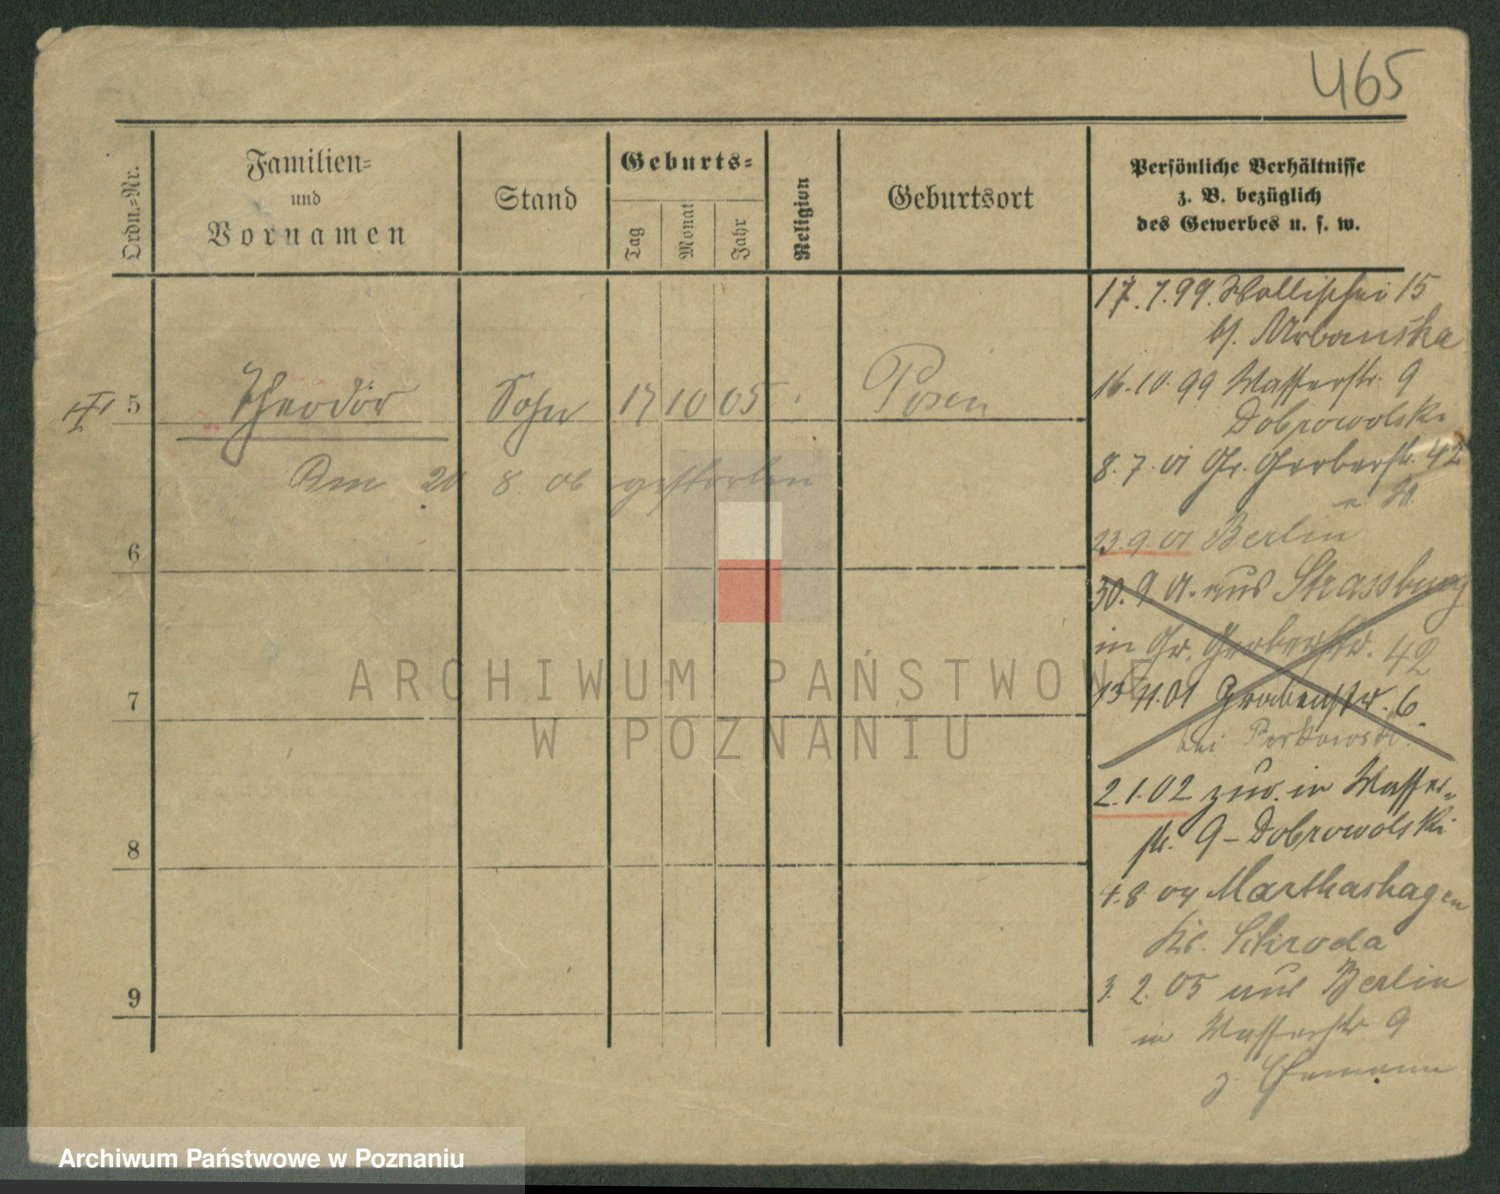 465
Ordn.-Nr.
Familien-
und
Vornamen
Stand
Geburts-
Tag
Monat
Jahr
Religion
Geburtsort
Persönliche Verhältnisse
z. B. bezüglich
des Gewerbes u. s. w.
5 Theodor Sohn 17 10 05 Posen
Am 20 8. 06 gestorben
6
7
8
9
17.7.99. Wallischei 15
bj. Urbanska
16.10.99 Wasserstr. 9
Dobrowolski
8.7.01 Gr. Gerberstr. 42
23.9.01 Berlin
30.9.01. aus Strassburg
in Gr. Gerberstr. 42
13 11.01 Grabenstr. 6.
bei
2.1.02 zur. in Wasser-
str. 9 - Dobrowolski
1.8 04 Marthashagen
Kr. Schroda
3. 2. 05 aus Berlin
in Wasserstr 9
z. Ehemann
ARCHIWUM PAŃSTWOWE
W POZNANIU
Archiwum Państwowe w Poznaniu